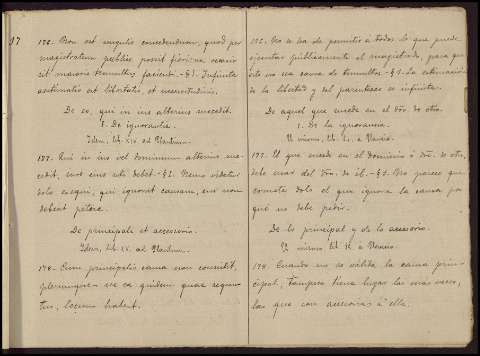 17
176. Non est singulis concedendum, quod per
magistratum publice possit fieri, ne occasio
sit majoris tumultus -§1. Infinita
aestimatio est libertatis, et necessitudinis.
De eo, qui in ius alterius succedit.
De ignorantia.
Idem, lib. XIV. ad Plautium.
177. Qui in ius vel dominium alterius suc-
cedit, iure eius uti debet. -§1. Nemo videtur
dolo exequi, qui ignorat causam, cur non
debeat petere.
De principali et accessorio.
Idem, lib. XV. ad Plautium.
178. Cum principalis causa non consistit,
plerumque ne ea quidem quae sequun-
tur, locum habent.
176. No se ha de permitir á todos lo que puede
ejecutar públicamente el magistrado, para que
esto no sea causa de tumultos. -§1. La estimación
de la libertad y del parentesco es infinita.
De aquel que sucede en el dro. de otro.
De la ignorancia.
El mismo, lib.
177. El que sucede en el dominio ó dro. de otro,
debe usar del dro. de él. -§1. No parece que
comete dolo el que ignora la causa por
qué no debe pedir.
De lo principal y de lo accesorio.
El mismo lib.
178. Cuando no es válida la causa prin-
cipal, tampoco tiene lugar las más veces,
las que son accesorias á ella.